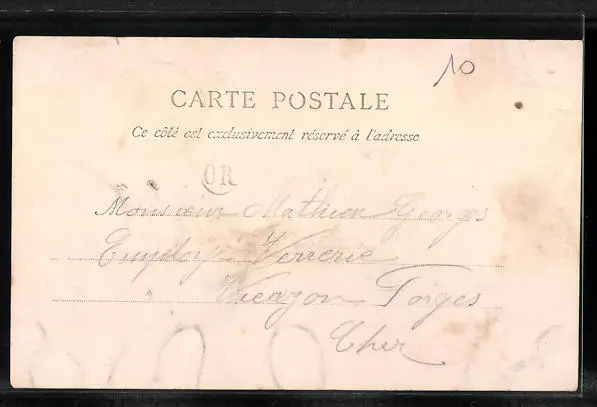 10
CARTE POSTALE
Ce côté est exclusivement réservé à l'adresse
OR
Monsieur Mathieu Georges
Employé Verrerie
Vierzon Forges
Cher